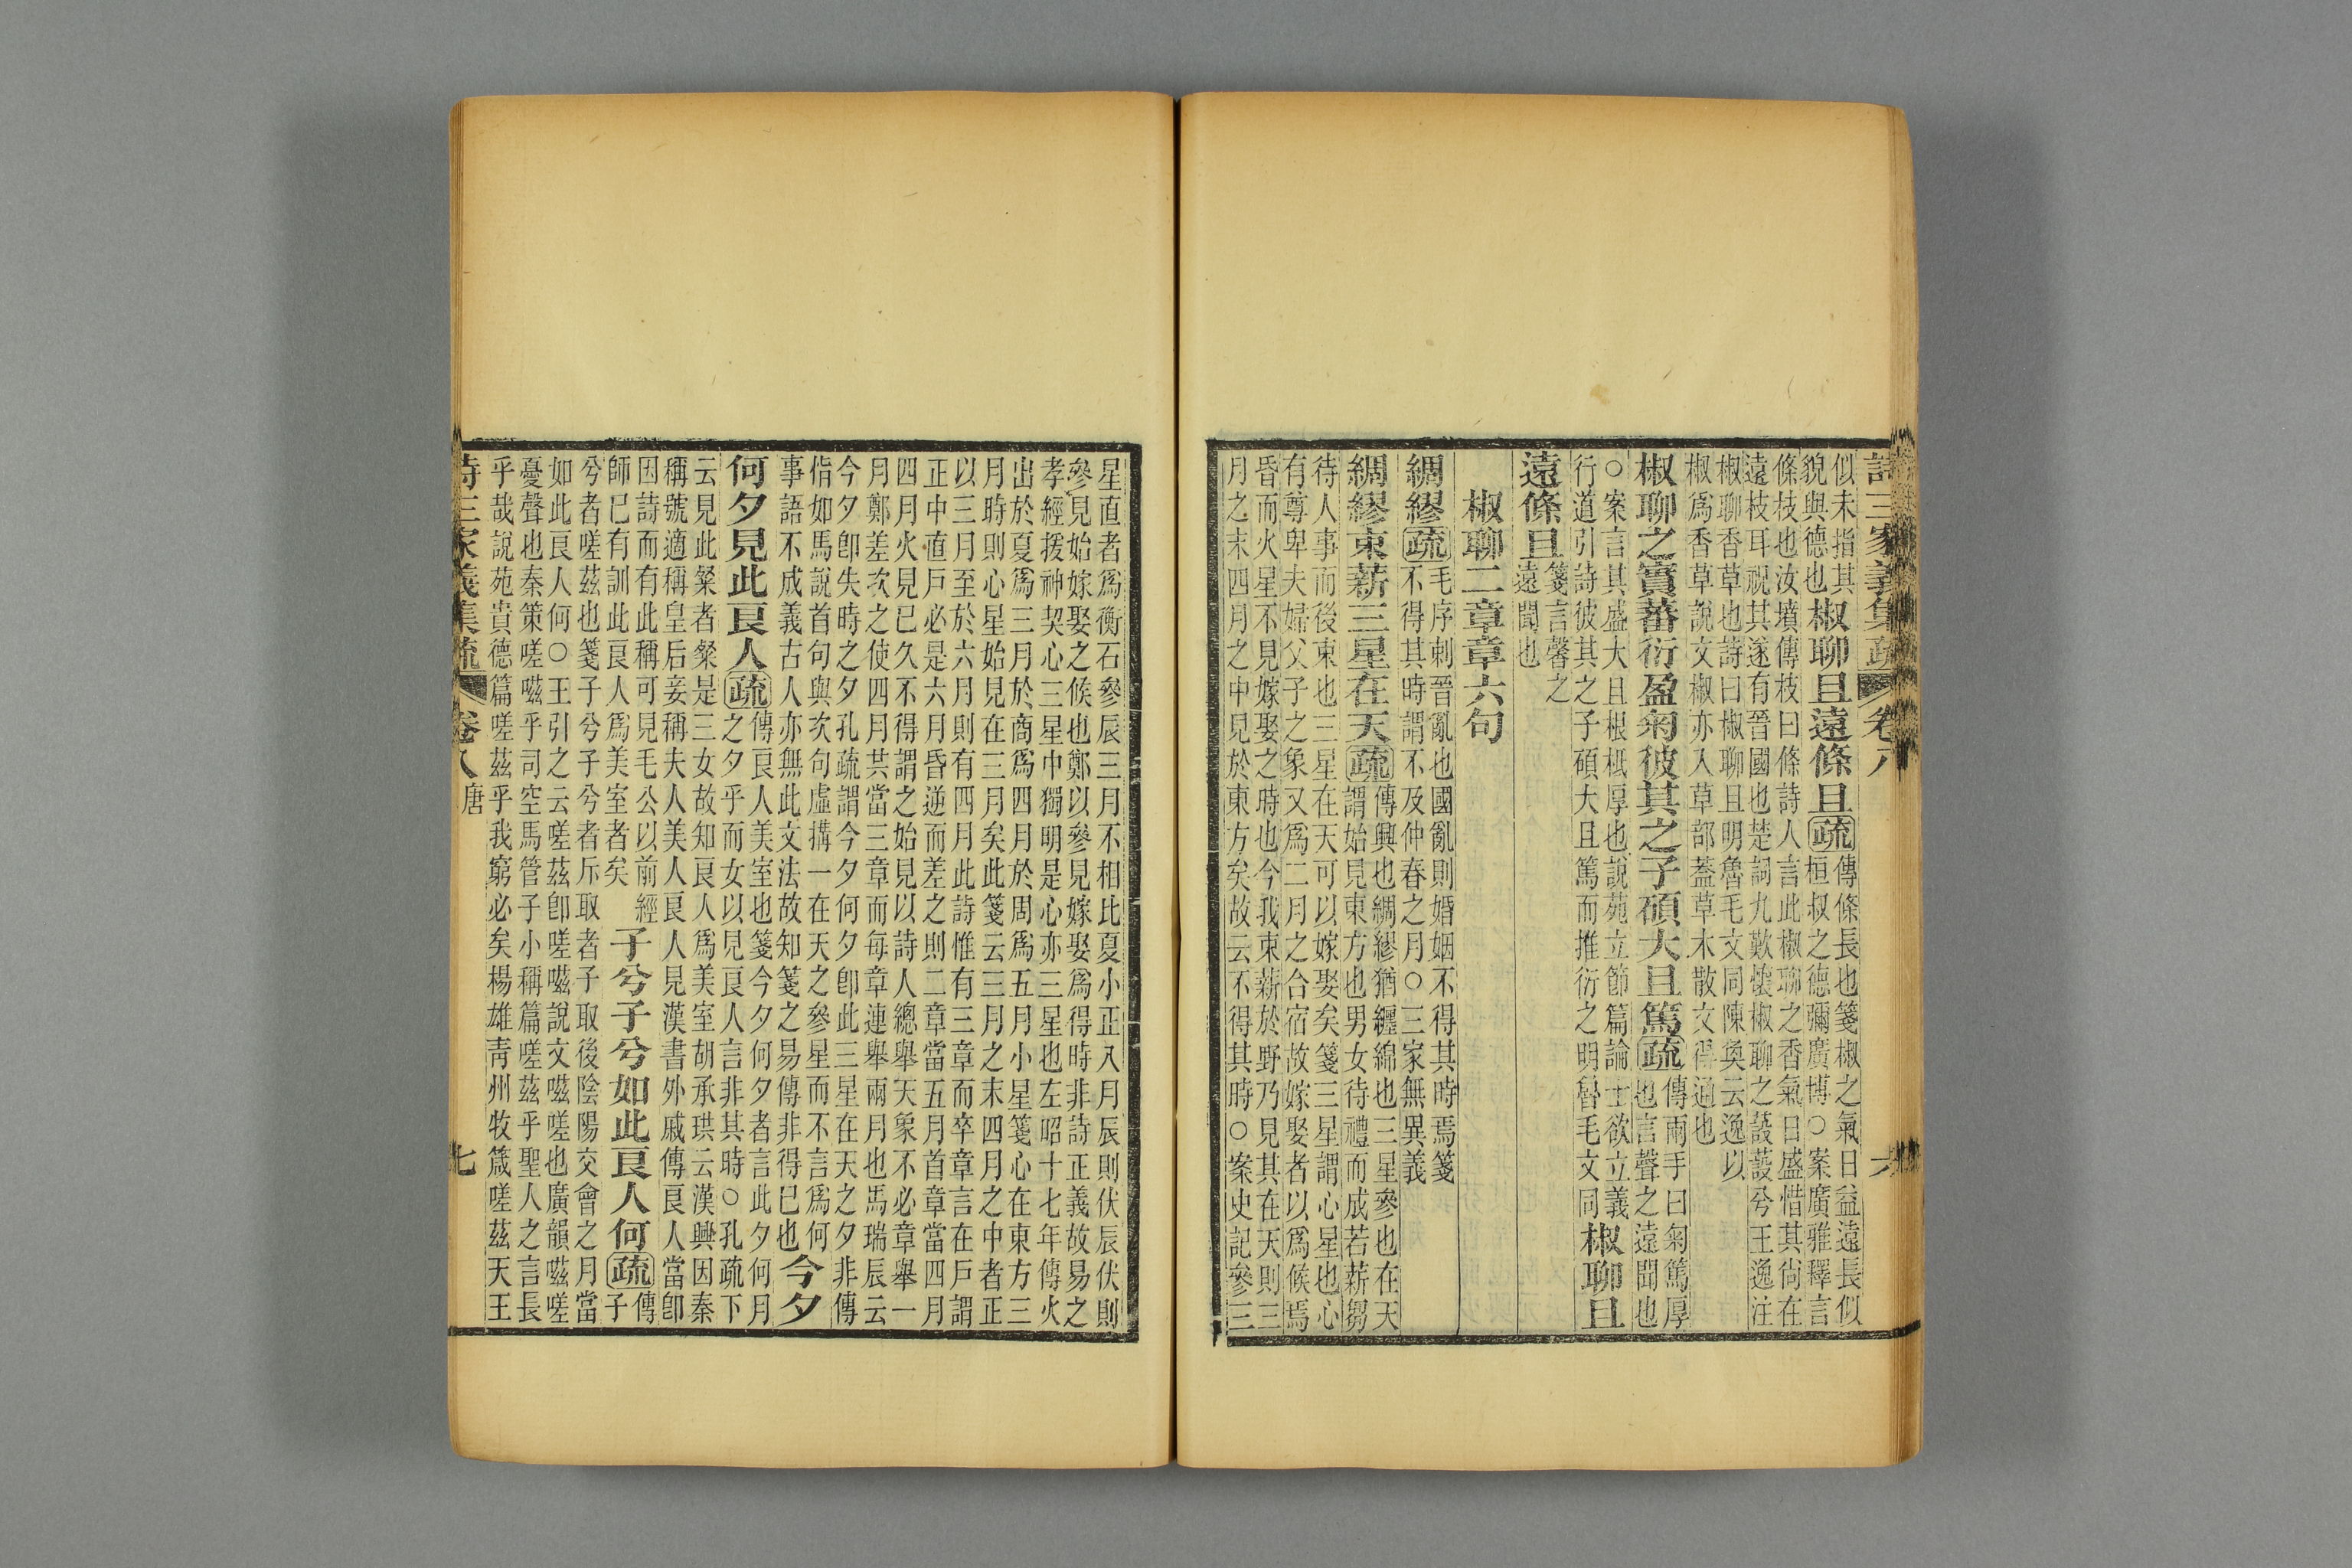 詩三家義集疏 卷八 六
似未指其
貌與德也椒聊且遠條且疏傳條長也箋椒之氣日益遠長似
桓叔之德彌廣博○案廣雅釋言
條枝也汝墳傳枝曰條詩人言此椒聊之香氣日盛惜其尙在
遠枝耳祝其遂有晉國也楚詞九歎懷椒聊之蔎蔎兮王逸注
椒聊香草也詩曰椒聊且明魯毛文同陳奐云逸以
椒爲香草說文椒亦入草部蓋草木散文得通也
椒聊之實蕃衍盈匊彼其之子碩大且篤疏傳兩手曰匊篤厚
也言聲之遠聞也
○案言其盛大且根柢厚也說苑立節篇論士欲立義
行道引詩彼其之子碩大且篤而推衍之明魯毛文同椒聊且
遠條且箋言馨之
遠聞也
椒聊二章章六句
綢繆疏毛序刺晉亂也國亂則婚姻不得其時焉箋
不得其時謂不及仲春之月○三家無異義
綢繆束薪三星在天疏傳興也綢繆猶纏綿也三星參也在天
謂始見東方也男女待禮而成若薪芻
待人事而後束也三星在天可以嫁娶矣箋三星謂心星也心
有尊卑夫婦父子之象又爲二月之合宿故嫁娶者以爲候焉
昏而火星不見嫁娶之時也今我束薪於野乃見其在天則三
月之末四月之中見於東方矣故云不得其時○案史記參三
星直者爲衡石參辰三月不相比夏小正入月辰則伏辰伏則
參見始嫁娶之候也鄭以參見嫁娶爲得時非詩正義故易之
孝經援神契心三星中獨明是心亦三星也左昭十七年傳火
出於夏爲三月於商爲四月於周爲五月小星箋心在東方三
月時則心星始見在三月矣此箋云三月之末四月之中者正
以三月至於六月則有四月此詩惟有三章而卒章言在戶謂
正中直戶必是六月昏逆而差之則二章當五月首章當四月
四月火見已久不得謂之始見以詩人總舉天象不必章舉一
月鄭差次之使四月共當三章而每章連舉兩月也馬瑞辰云
今夕卽失時之夕孔疏謂今夕何夕卽此三星在天之夕非傳
偕如馬說首句與次句虛搆一在天之參星而不言爲何
事語不成義古人亦無此文法故知箋之易傳非得已也今夕
何夕見此良人疏傳良人美室也箋今夕何夕者言此夕何月
之夕乎而女以見良人言非其時○孔疏下
云見此粲者粲是三女故知良人爲美室胡承珙云漢興因秦
稱號適稱皇后妾稱夫人美人良人見漢書外戚傳良人當卽
因詩而有此稱可見毛公以前經
師已有訓此良人爲美室者矣子兮子兮如此良人何疏傳
子
兮者嗟茲也箋子兮子兮者斥取者子取後陰陽交會之月當
如此良人何○王引之云嗟茲卽嗟嗞說文嗞嗟也廣韻嗞嗟
憂聲也秦策嗟嗞乎司空馬管子小稱篇嗟茲乎聖人之言長
乎哉說苑貴德篇嗟茲乎我窮必矣楊雄靑州牧箴嗟茲天王
詩三家義集疏 卷八唐 七